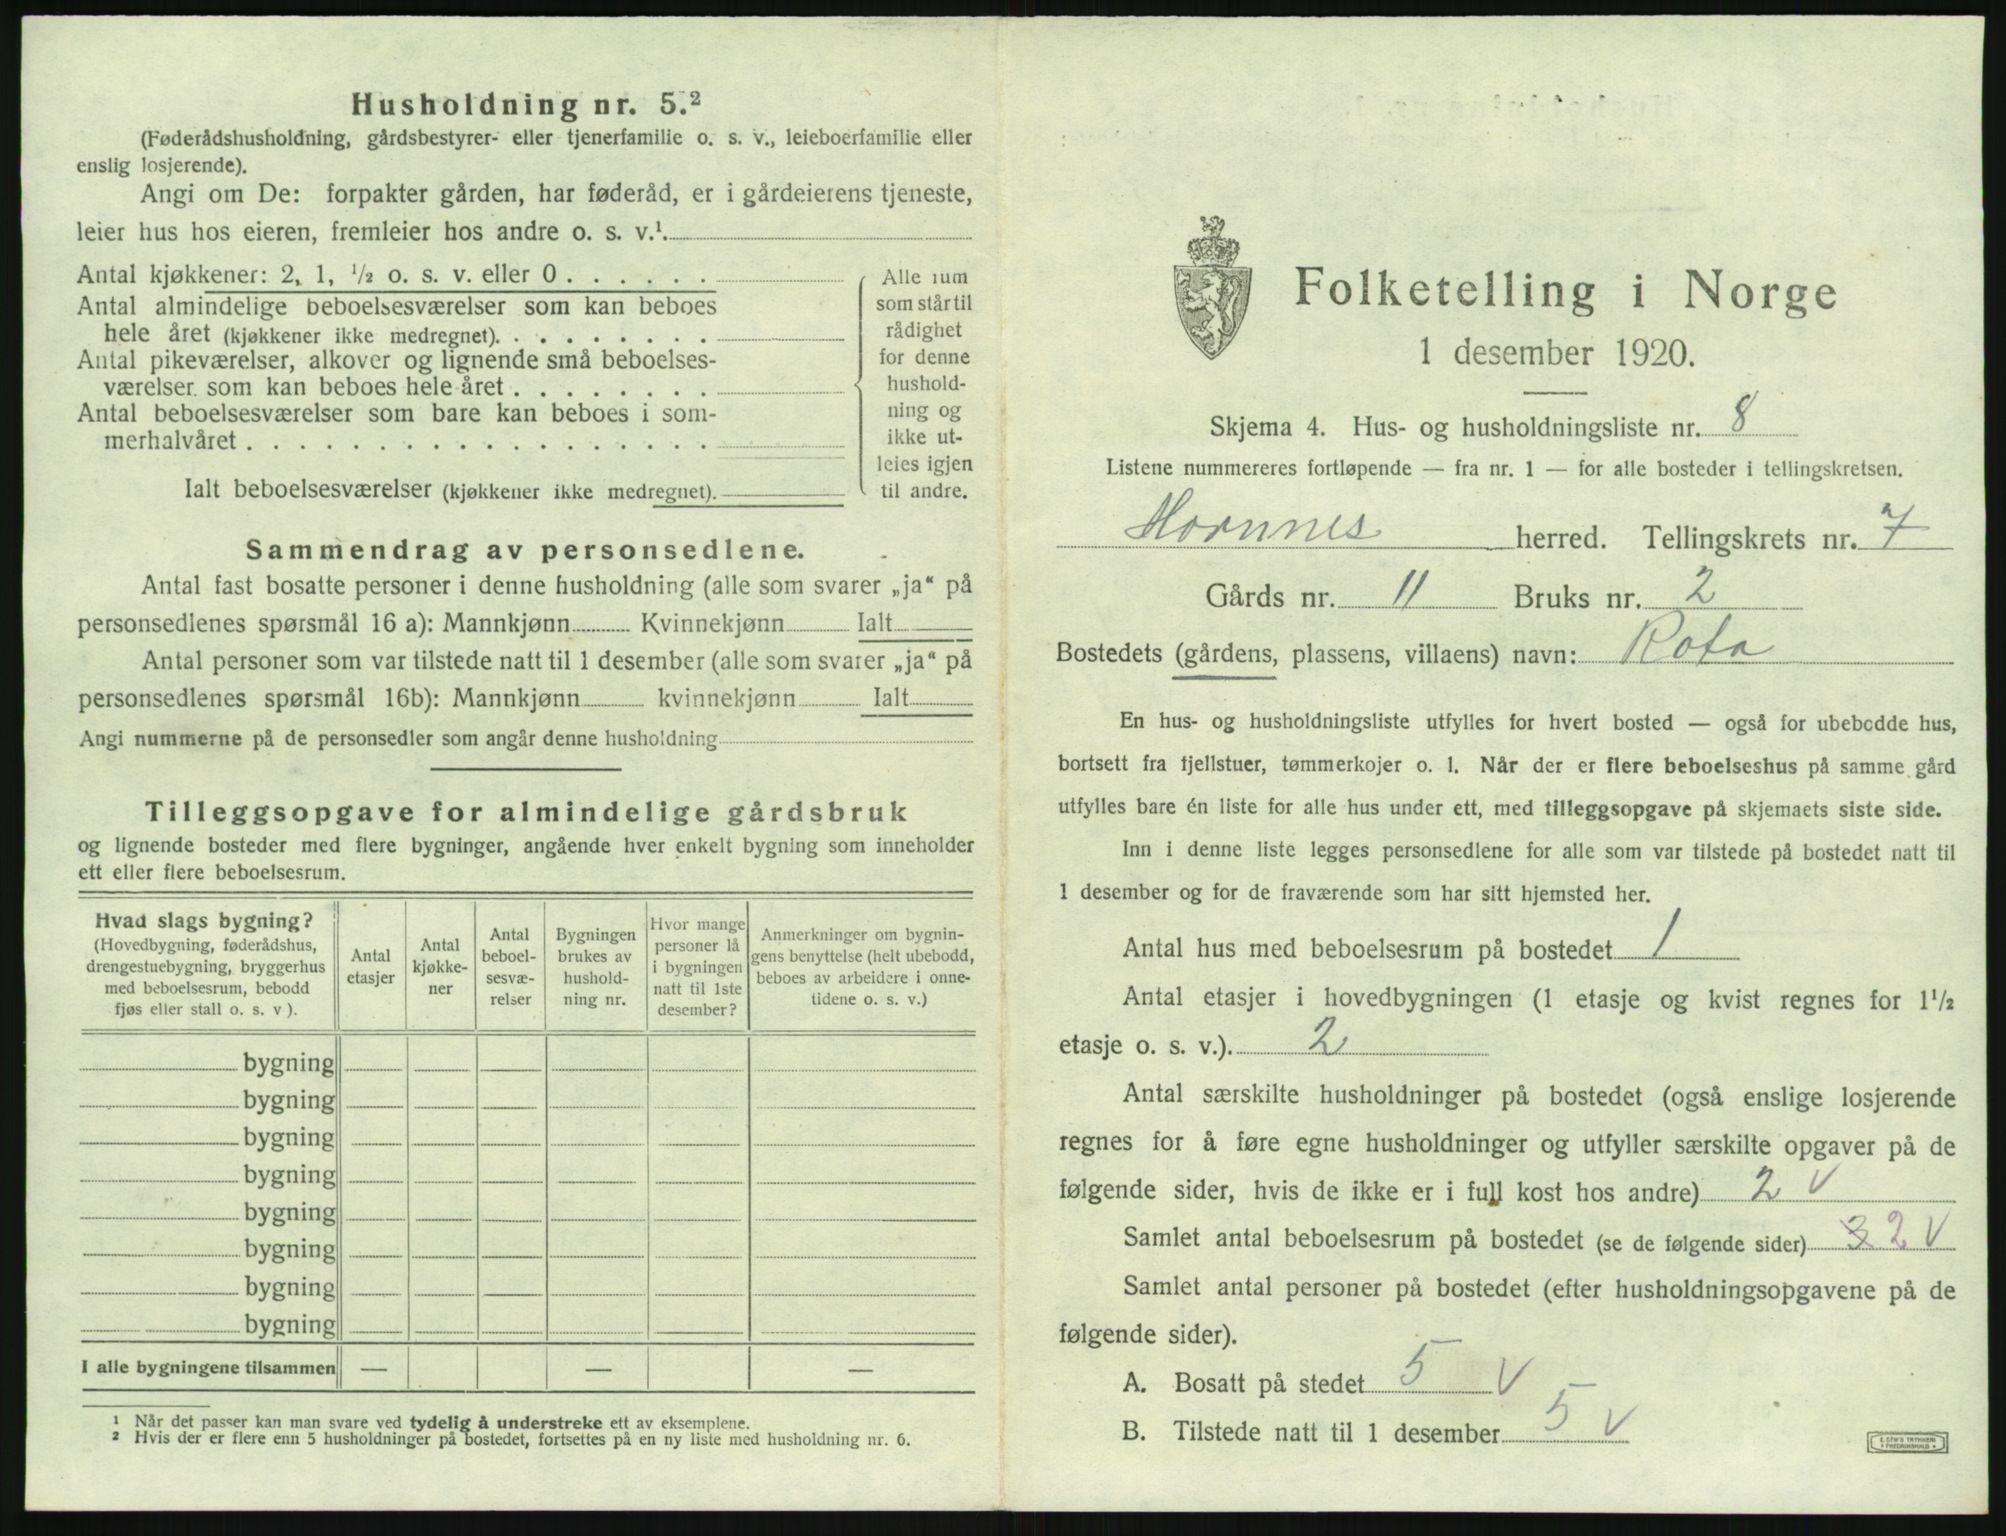 Husholdning nr. 5.²
(Føderådshusholdning, gårdsbestyrer- eller tjenerfamilie o. s. v., leieboerfamilie eller
enslig losjerende).
Angi om De: forpakter gården, har føderåd, er i gårdeierens tjeneste,
leier hus hos eieren, fremleier hos andre o. s. v.¹.
Antal kjøkkener: 2, 1, ½ o. s. v. eller 0 . . . . . .
Antal almindelige beboelsesværelser som kan beboes
hele året (kjøkkener ikke medregnet). . . . . . . . .
Antal pikeværelser, alkover og lignende små beboelses-
værelser som kan beboes hele året . . . . . . . .
Antal beboelsesværelser som bare kan beboes i som-
merhalvåret . . . . . . . . . . . . . . . . . .
Ialt beboelsesværelser (kjøkkener ikke medregnet).
Alle rum
som står til
rådighet
for denne
hushold-
ning og
ikke ut-
leies igjen
til andre.
Sammendrag av personsedlene.
Antal fast bosatte personer i denne husholdning (alle som svarer „ja“ på
personsedlenes spørsmål 16 a): Mannkjønn Kvinnekjønn Ialt
Antal personer som var tilstede natt til 1 desember (alle som svarer „ja“ på
personsedlenes spørsmål 16b): Mannkjønn kvinnekjønn Ialt
Angi nummerne på de personsedler som angår denne husholdning
Tilleggsopgave for almindelige gårdsbruk
og lignende bosteder med flere bygninger, angående hver enkelt bygning som inneholder
ett eller flere beboelsesrum.
Hvad slags bygning?
(Hovedbygning, føderådshus,
drengestuebygning, bryggerhus
med beboelsesrum, bebodd
fjøs eller stall o. s. v ).
Antal
etasjer
Antal
kjøkke-
ner
Antal
beboel-
sesvæ-
relser
Bygningen
brukes av
hushold-
ning nr.
Hvor mange
personer lå
i bygningen
natt til 1ste
desember?
Anmerkninger om bygnin-
gens benyttelse (helt ubebodd,
beboes av arbeidere i onne-
tidene o. s. v.)
bygning
bygning
bygning
bygning
bygning
bygning
bygning
bygning
I alle bygningene tilsammen — — —
¹ Når det passer kan man svare ved tydelig å understreke ett av eksemplene.
² Hvis der er flere enn 5 husholdninger på bostedet, fortsettes på en ny liste med husholdning nr. 6.
Folketelling i Norge
1 desember 1920.
Skjema 4. Hus- og husholdningsliste nr. 8
Listene nummereres fortløpende — fra nr. 1 — for alle bosteder i tellingskretsen.
Hornnes herred. Tellingskrets nr. 7
Gårds nr. 11 Bruks nr. 2
Bostedets (gårdens, plassens, villaens) navn: Rota
En hus- og husholdningsliste utfylles for hvert bosted — også for ubebodde hus,
bortsett fra fjellstuer, tømmerkojer o. l. Når der er flere beboelseshus på samme gård
utfylles bare én liste for alle hus under ett, med tilleggsopgave på skjemaets siste side.
Inn i denne liste legges personsedlene for alle som var tilstede på bostedet natt til
1 desember og for de fraværende som har sitt hjemsted her.
Antal hus med beboelsesrum på bostedet 1
Antal etasjer i hovedbygningen (1 etasje og kvist regnes for 1½
etasje o. s. v.). 2
Antal særskilte husholdninger på bostedet (også enslige losjerende
regnes for å føre egne husholdninger og utfyller særskilte opgaver på de
følgende sider, hvis de ikke er i full kost hos andre) 2 v
Samlet antal beboelsesrum på bostedet (se de følgende sider) 3 2 v
Samlet antal personer på bostedet (efter husholdningsopgavene på de
følgende sider).
A. Bosatt på stedet 5 v
B. Tilstede natt til 1 desember 5 v